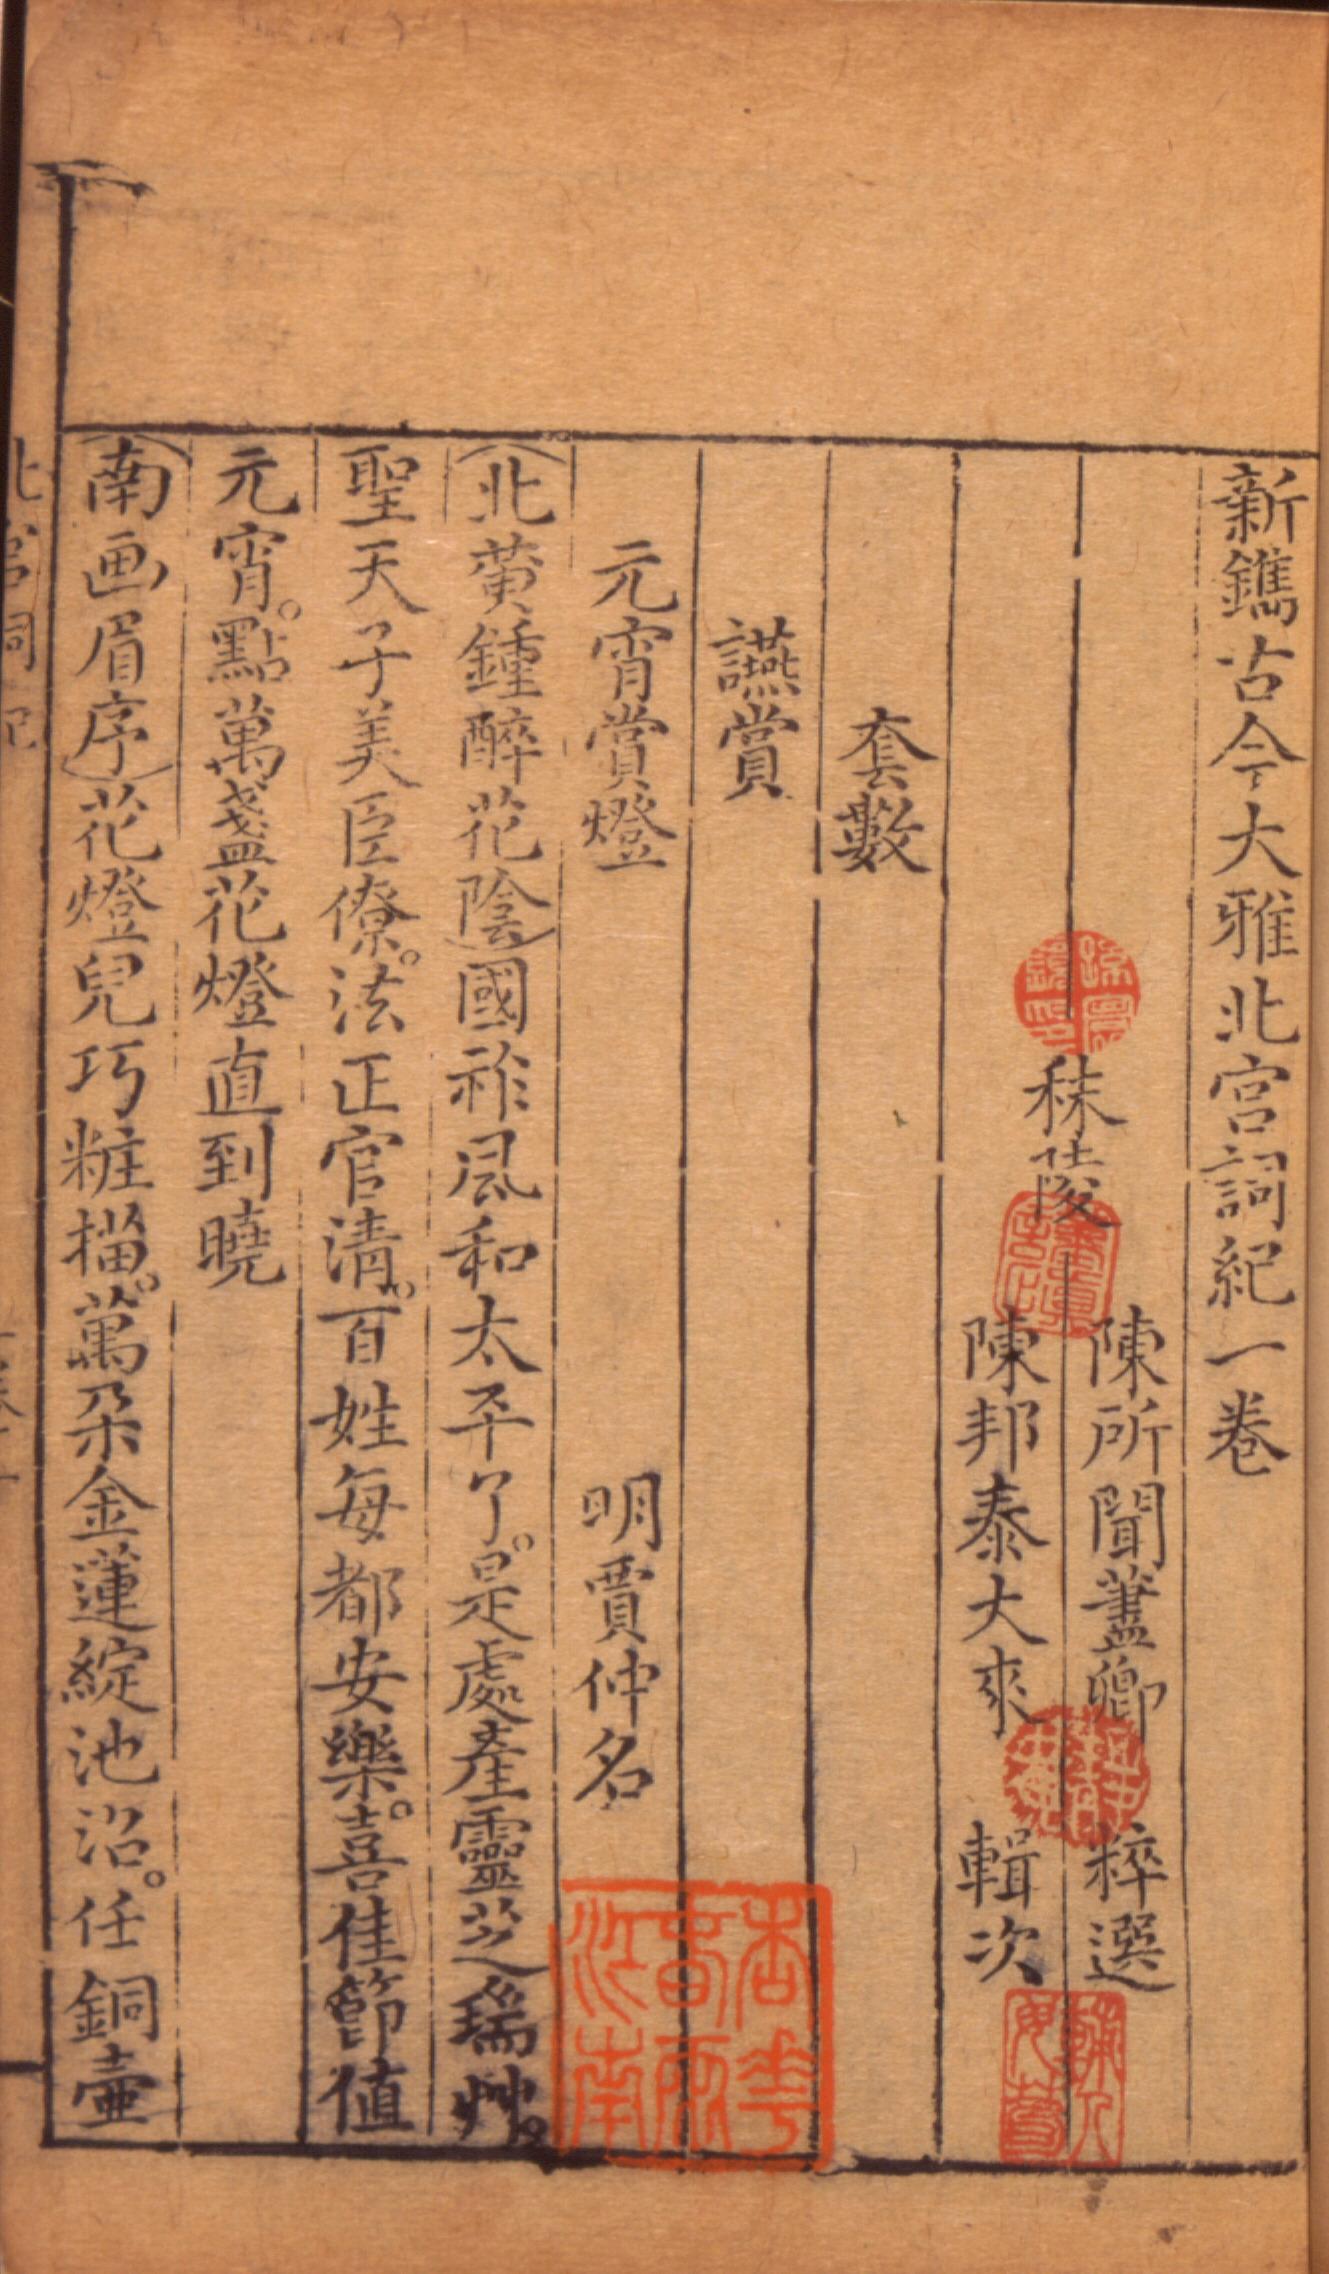 新鐫古今大雅北宮詞紀一卷
秣陵
陳所聞藎卿 粹選
陳邦泰大來 輯次
套數
讌賞
元宵賞燈 明賈仲名
(北黃鍾醉花陰)國祚風和太平了。是處產靈芝瑞艸。
聖天子美臣僚。法正官清。百姓每都安樂。喜佳節值
元宵。點萬盞花燈直到曉
(南画眉序)花燈兒巧粧描。萬朵金蓮綻池沼。任銅壷
北宮詞紀